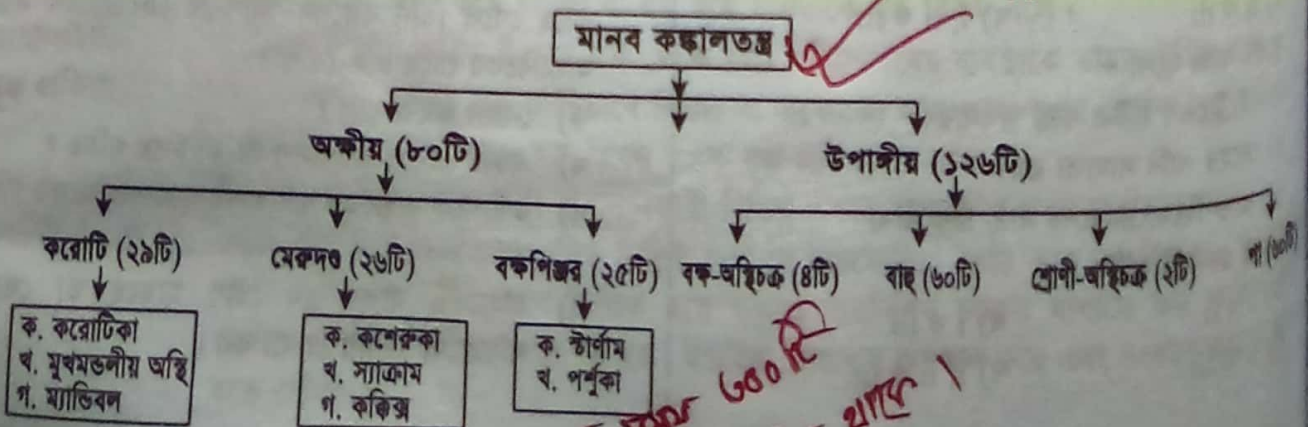 মানব কঙ্কালতন্ত্র
অক্ষীয় (৮০টি)
উপাঙ্গীয় (১২৬টি)
করোটি (২৯টি)
মেরুদণ্ড (২৬টি)
বক্ষপিঞ্জর (২৫টি)
বক্ষ-অস্থিচক্র (৪টি)
বাহু (৬০টি)
শ্রোণী-অস্থিচক্র (২টি)
পা (৬০টি)
ক. করোটিকা
খ. মুখমণ্ডলীয় অস্থি
গ. ম্যান্ডিবল
ক. কশেরুকা
খ. স্যাক্রাম
গ. কক্কিক্স
ক. স্টার্ণাম
খ. পর্শুকা
৩০০ টি
থাকে।